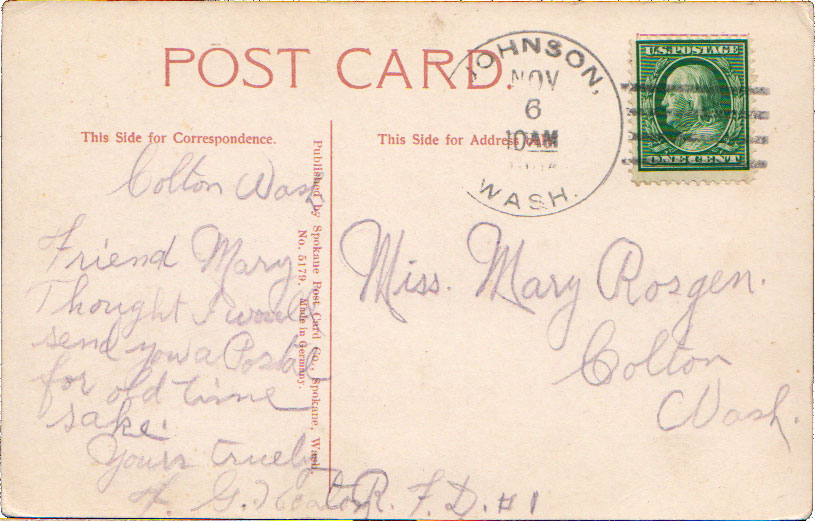 POST CARD.
This Side for Correspondence.
This Side for Address
JOHNSON,
NOV
6
10 AM
WASH.
U.S. POSTAGE
ONE CENT
Colton Wash
Friend Mary
Thought I would
send you a Postal
for old time
sake.
Yours truely
G. Heaton
Published by Spokane Post Card Co., Spokane, Wash.
No. 5179. Made in Germany.
Miss. Mary Rosgen.
Colton
Wash.
R. F. D. #1